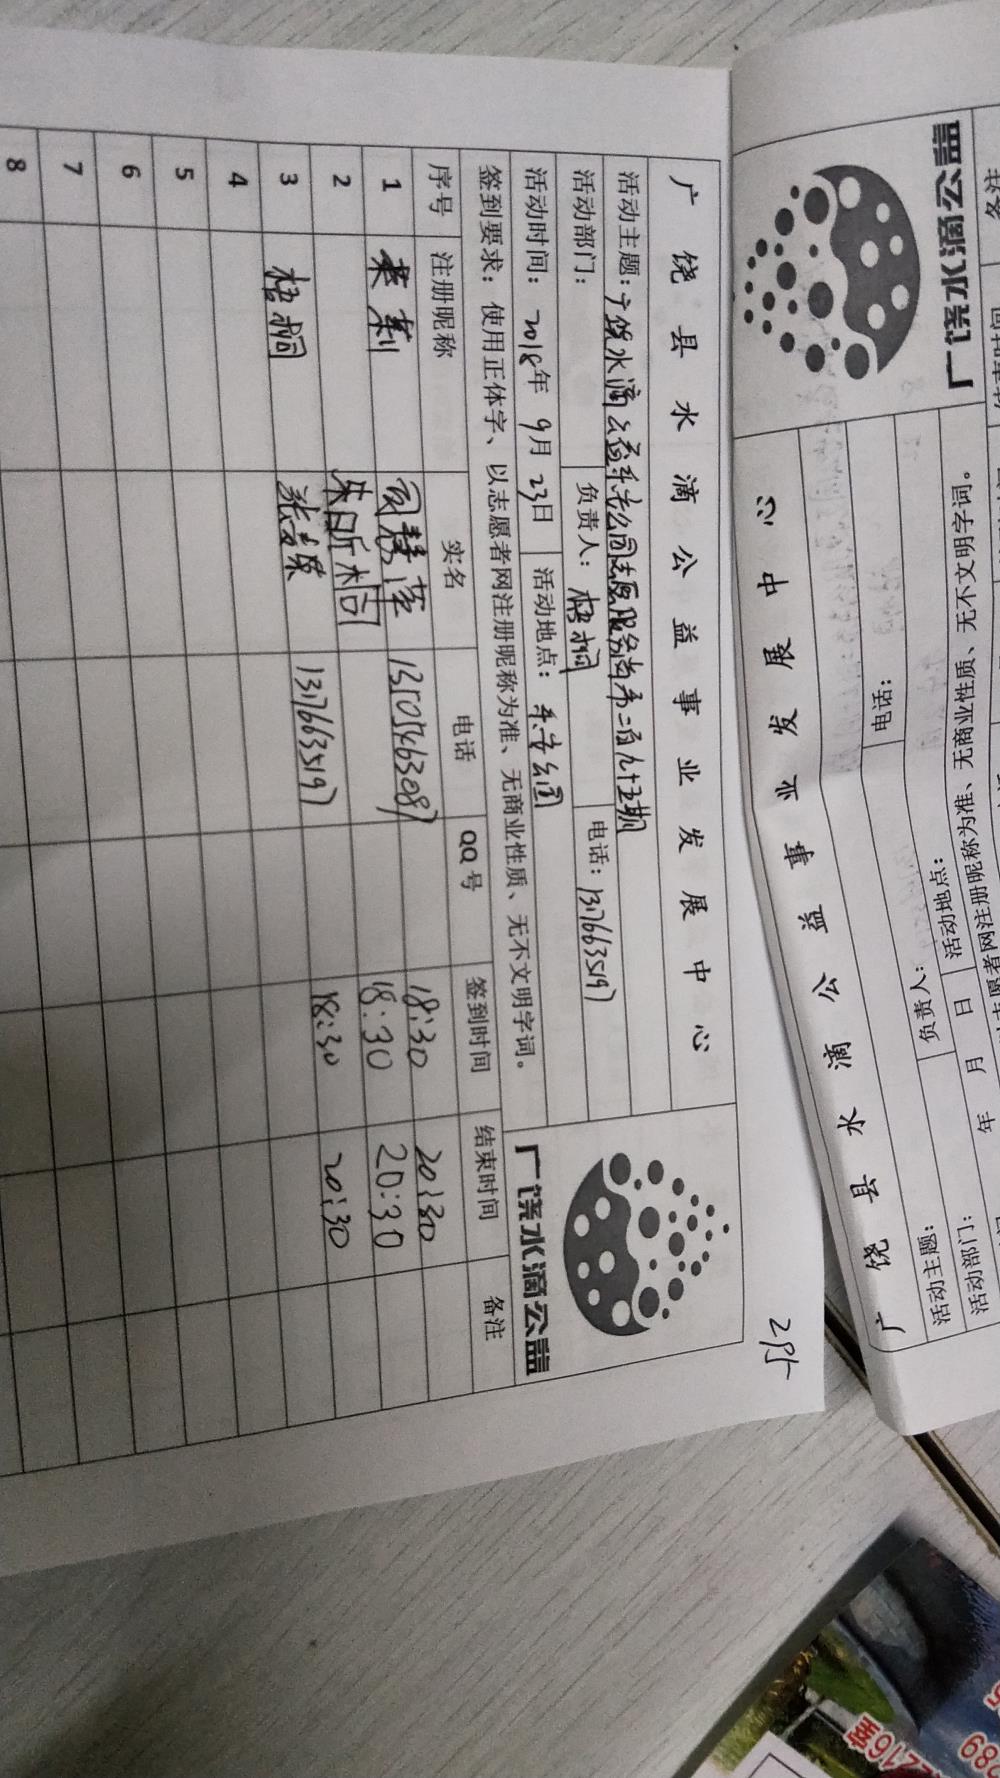 295
广饶县水滴公益事业发展中心
广饶水滴公益
活动主题：广饶水滴公益乐安公园志愿服务岗第二百九十五期
活动部门： 负责人：梧桐 电话：13176635197
活动时间：2018年9月23日 活动地点：乐安公园
签到要求：使用正体字、以志愿者网注册昵称为准、无商业性质、无不文明字词。
序号 注册昵称 实名 电话 QQ号 签到时间 结束时间 备注
1 18:30 20:30
2 18:30 20:30
3 梧桐 13176635197 18:30 20:30
4
5
6
7
8
广饶水滴公益
广饶县水滴公益事业发展中心
活动主题：
活动部门： 负责人： 电话：
年 月 日 活动地点：
志愿者网注册昵称为准、无商业性质、无不文明字词。
备注
216室